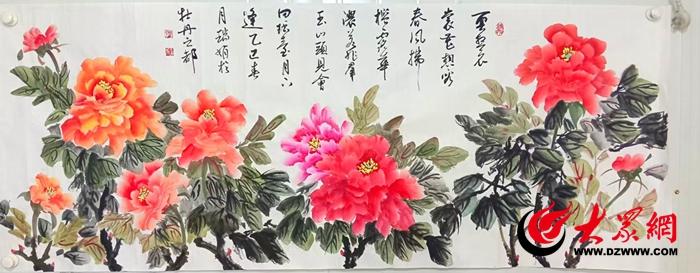 雲想衣
裳花想容
春風拂
檻露華
濃若非群
玉山頭見會
向瑶臺月下
逢乙巳春
月瑞娟於
牡丹之都
大眾網
WWW.DZWWW.COM